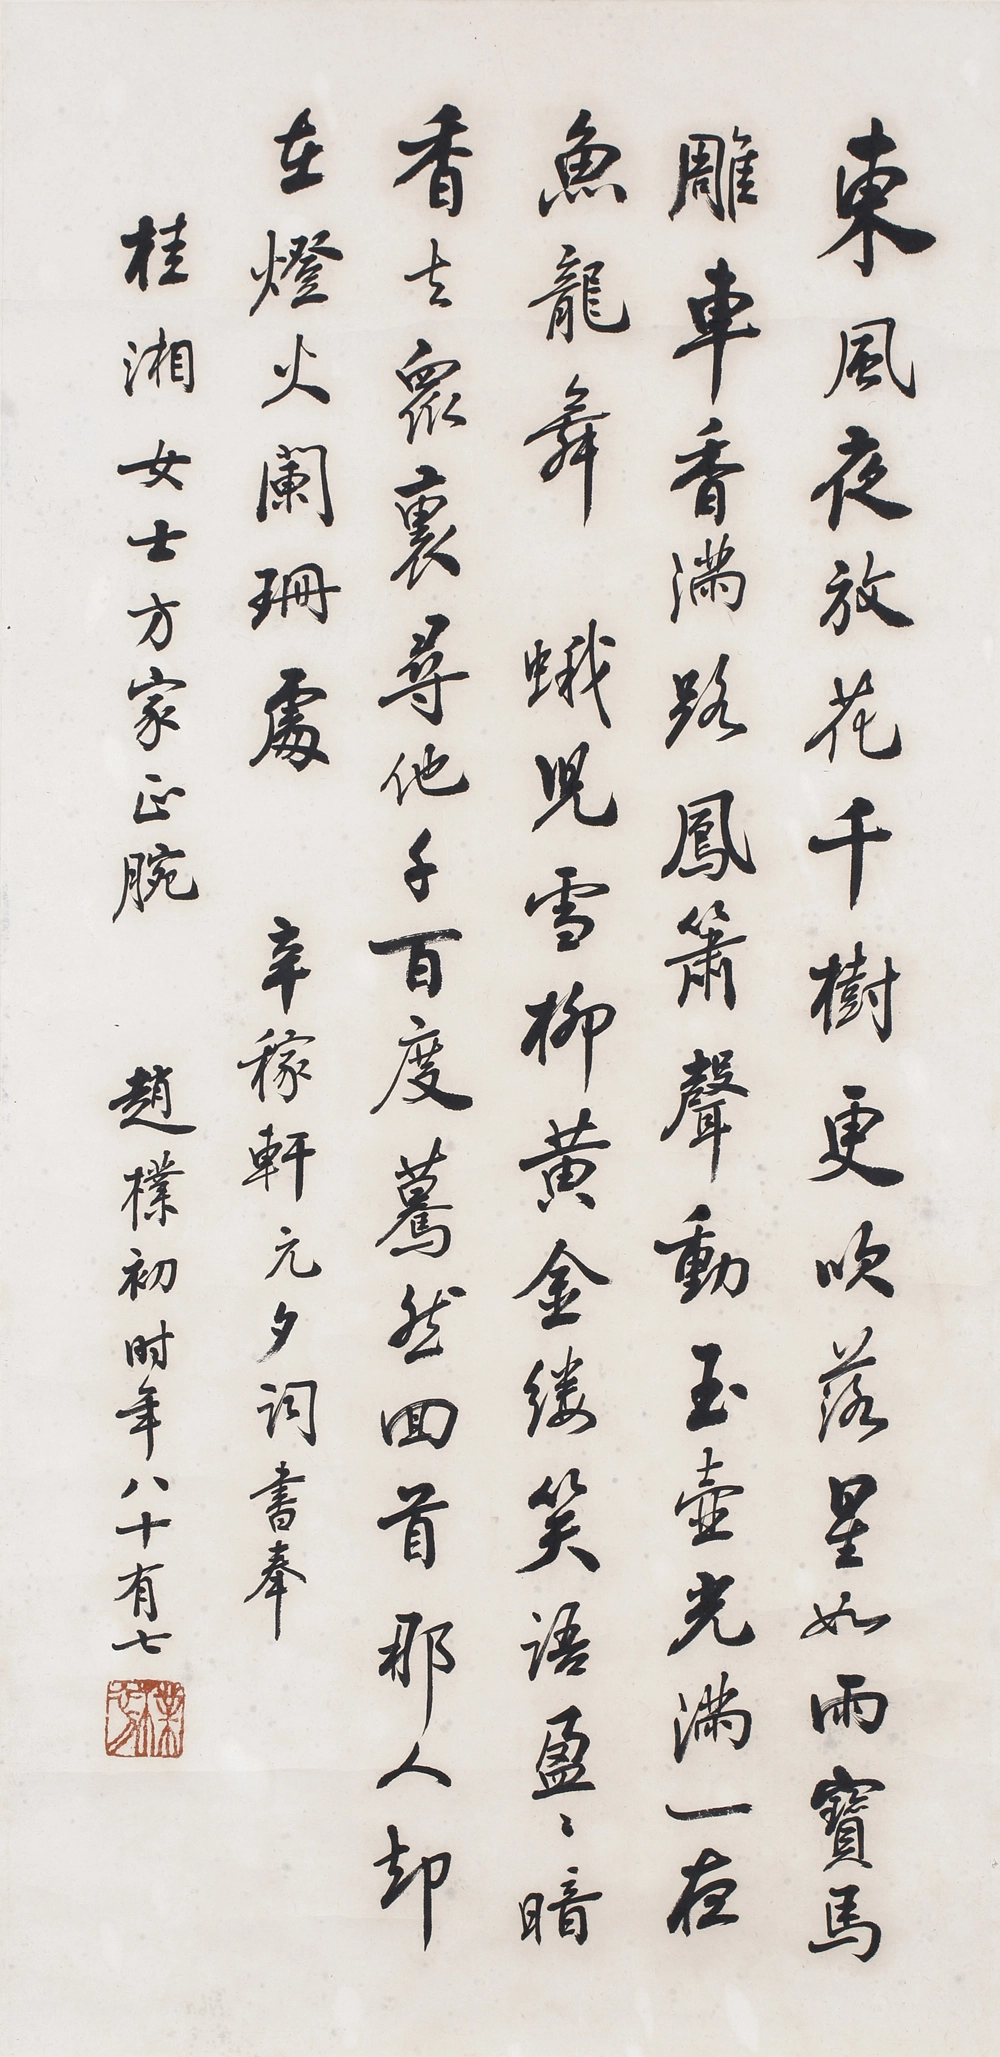 東風夜放花千樹更吹落星如雨寶馬
雕車香滿路鳳簫聲動玉壺光滿一夜
魚龍舞　蛾兒雪柳黃金縷笑語盈〻暗
香去衆裏尋他千百度驀然回首那人却
在燈火闌珊處　辛稼軒元夕詞書奉
桂湘女士方家正腕　趙樸初时年八十有七
樸初